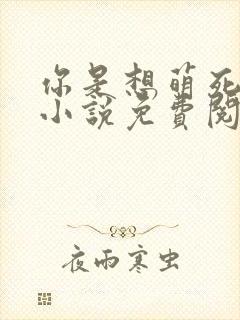 你是想萌死
小说免費閱
夜雨寒虫